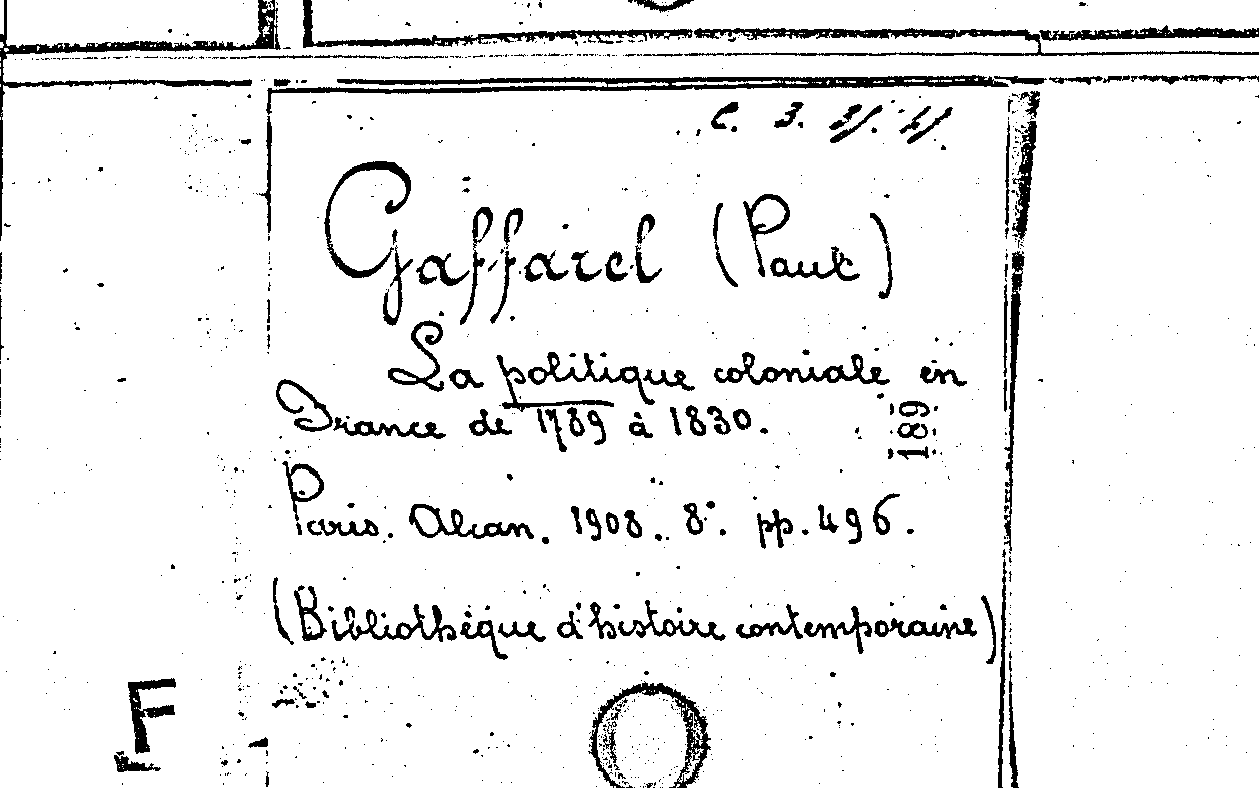 C. 3.
Gaffarel (Paul)
La politique coloniale en
France de 1789 à 1830.
189
Paris. Alcan. 1908. 8°. pp. 496.
(Bibliothèque d'histoire contemporaine)
F